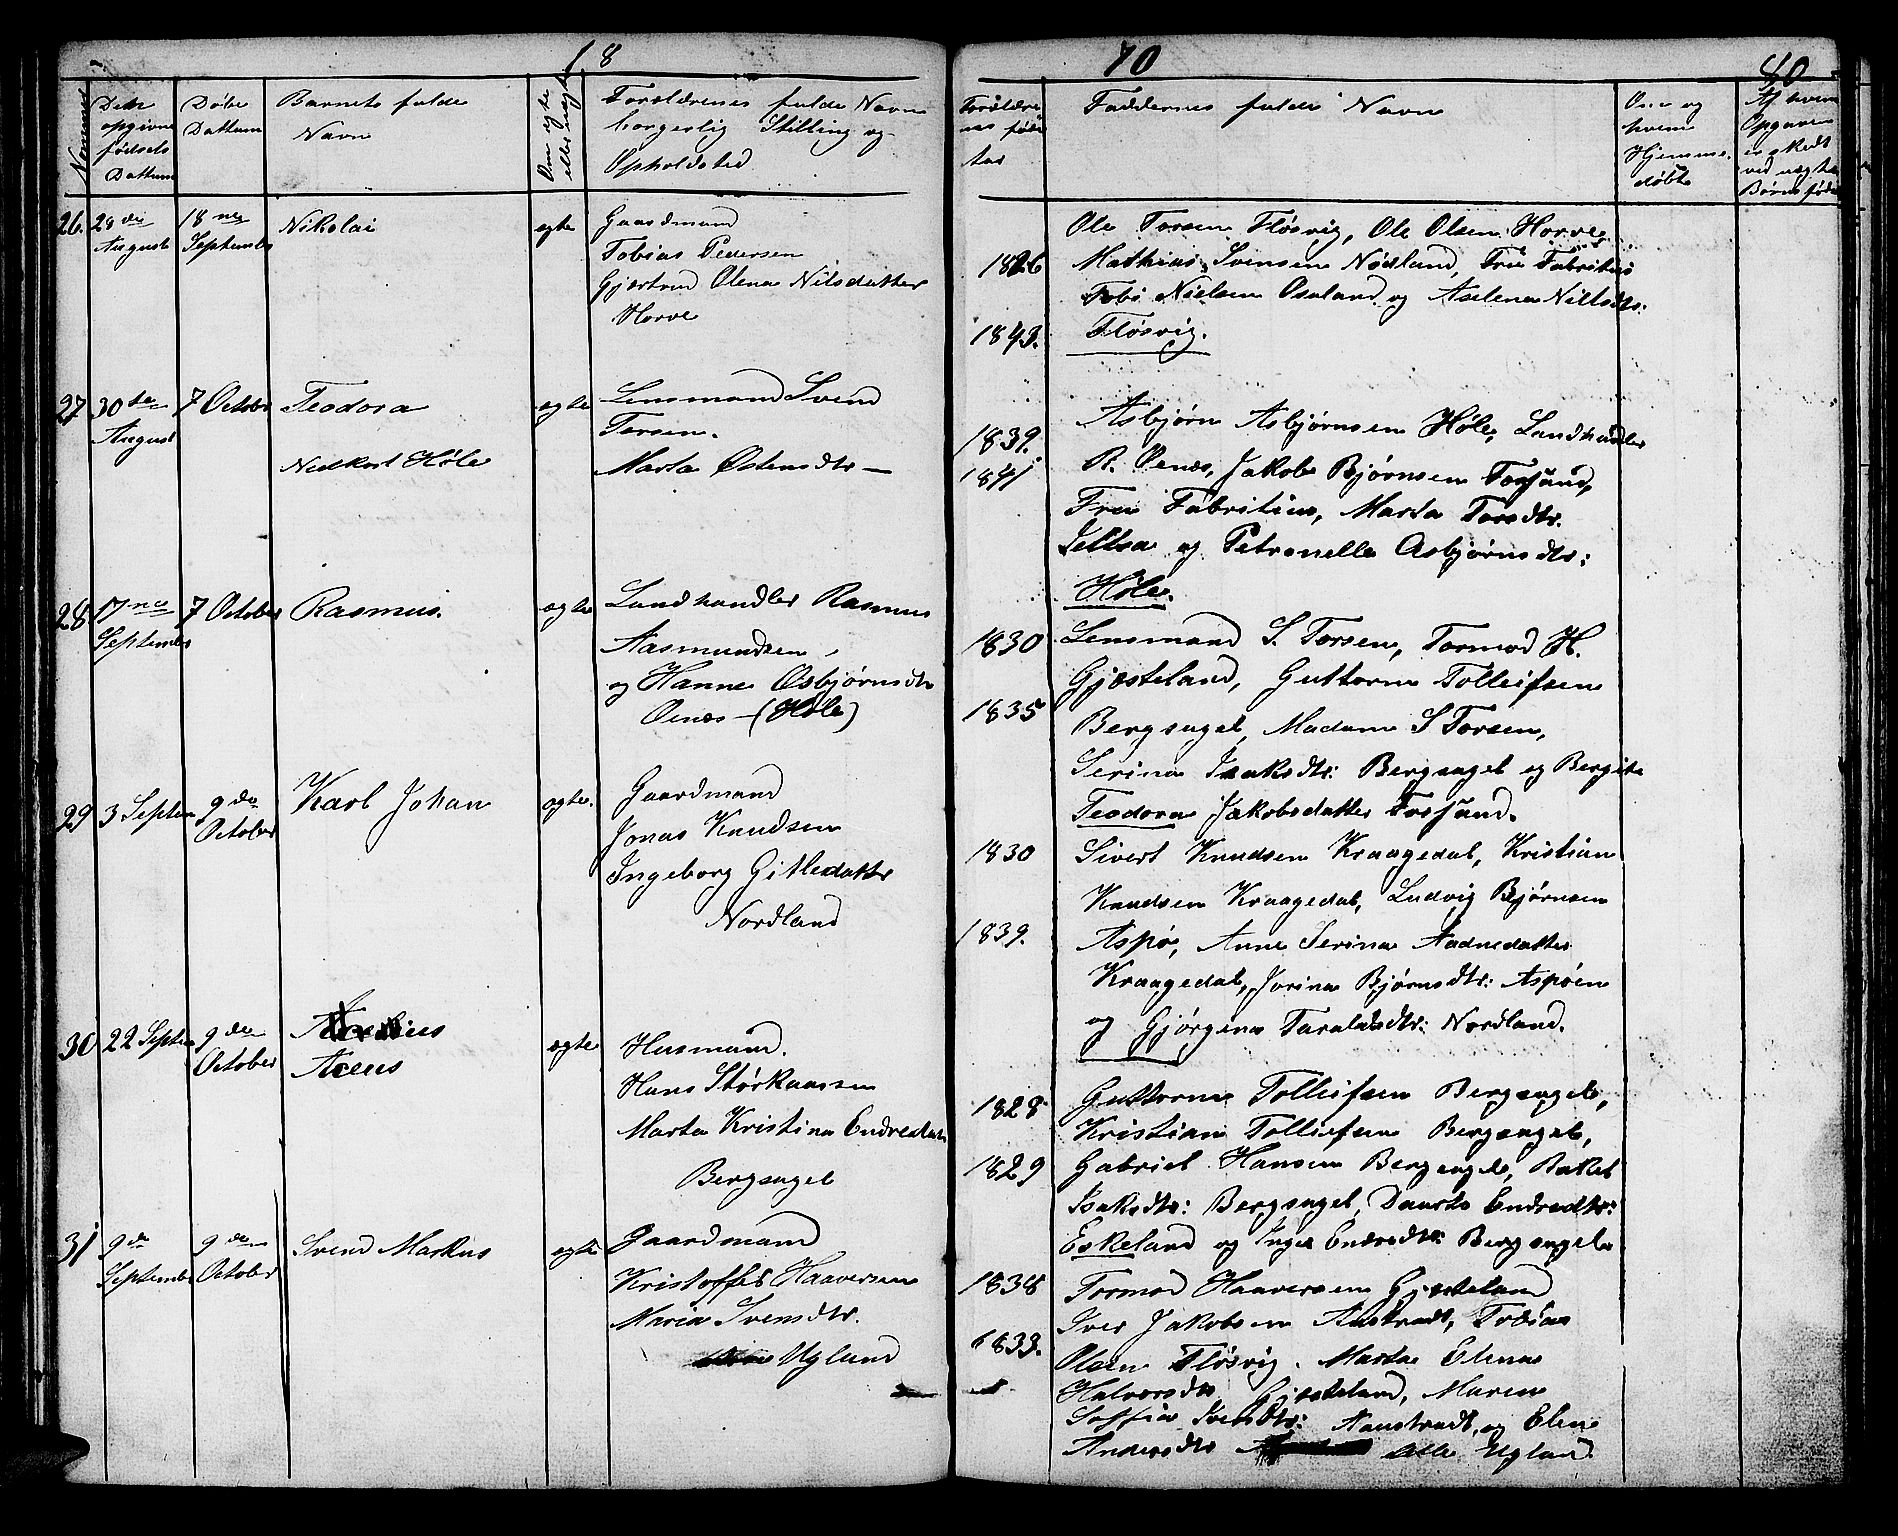 18
70
80
Nummer
Den opgivne fødsels Dattum
Døbe Dattum
Barnets fulde Navn
Om egte eller uegte
Forældrenes fulde Navn
borgerlig Stilling og
Opholdsted
Forældrenes føde Aar
Faddernes fulde Navn
Om og hvem Hjemmedøbt
26. 28de August
18nes September
Nikolai
egte
Gaardmand
Tobias Pedersen
Gjertrud Olena Nilsdatter
Horve
1826
1843.
Ole Torsen Fløsvig, Ole Olsen Horve
Mathias Svensen Nødland, Fru Fabritius
Nielsen Osaland og Aselena
Fløsvig.
27 30te August
7 October
Teodora
Nedkort Høle
egte
Lensmand Svend
Torsen.
Marta Ostensdtr —
1839.
1841
Asbjørn Asbjørnsen Høle, Landhandler
R. Oenæs, Jakob Bjørnsen Fosſand,
Fru Fabritius, Marta Torsdtr.
Jeltsa og Petronelle Asbjørnsdtr:
Høle.
28 17nes September
7 October
Rasmus.
egte
Landhandler Rasmus
Aasmundsen,
og Hanne Osbjørnsdtr
Oenæs — (Høle)
1830
1835
Lensmand S. Torsen, Tormod H.
Gjesteland, Guttorm Tolleifsen
Bergsagel, Madam S Torsen,
Serina Isaksdtr: Bergsagel og Bergite
Teodora Jakobsdatter Fosſand.
29 3 Septem
9de October
Karl Johan
egte.
Gaardmand
Jonas Knudsen
Ingeborg Gitlesdatter
Nordland
1830
1839.
Sivert Knudsen Kraagedal, Kristian
Knudsen Kraagedal, Ludvig Bjørnsen
Aspø, Anne Serina Aadnedatter
Kraagedal, Jorina Bjørnsdtr: Aspøen
og Gjørgina Taraldsdtr: Nordland.
30 22 Septem
9de October
egte
Husmand.
Hans Størkaassen
Marta Kristina Endresdatr
Bergsagel
1828
1829
Guttorm Tolleifsen Bergsagel,
Kristian Tolleifsen Bergsagel,
Gabriel Hansen Bergsagel, Rakel
Isaksdtr: Bergsagel, Endresdtr:
Eskeland og Inger Endresdtr: Bergsagel
31 9de September
9de October
Svend Markus
egte
Gaardmand
Kristoffer Haaversen
Maria Svensdtr.
Uglund
1838
1833.
Tormod Haaversen Gjesteland
Iver Jakobsen Austraat, Tobias
Olsen Fløsvig. Marta Elena
Halvorsdtr Gjesteland, Maren
Soffia Svensdtr: Aaustradt, og Elene
Andersdtr Uglund